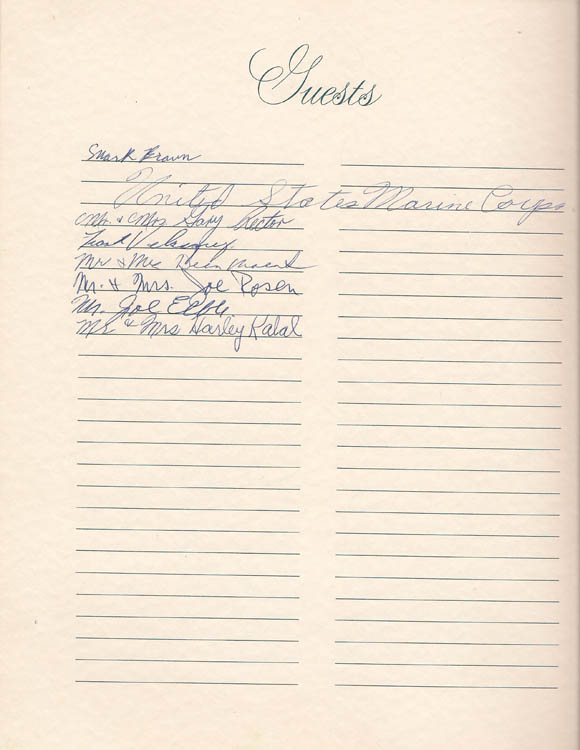 Guests
Mark Braun
United States Marine Corps
Mr. & Mrs Gary Rector
Frank Velasquez
Mr & Mrs
Mr. & Mrs. Joe Rosen
Mr. Joe
Mr & Mrs Harley Kalal